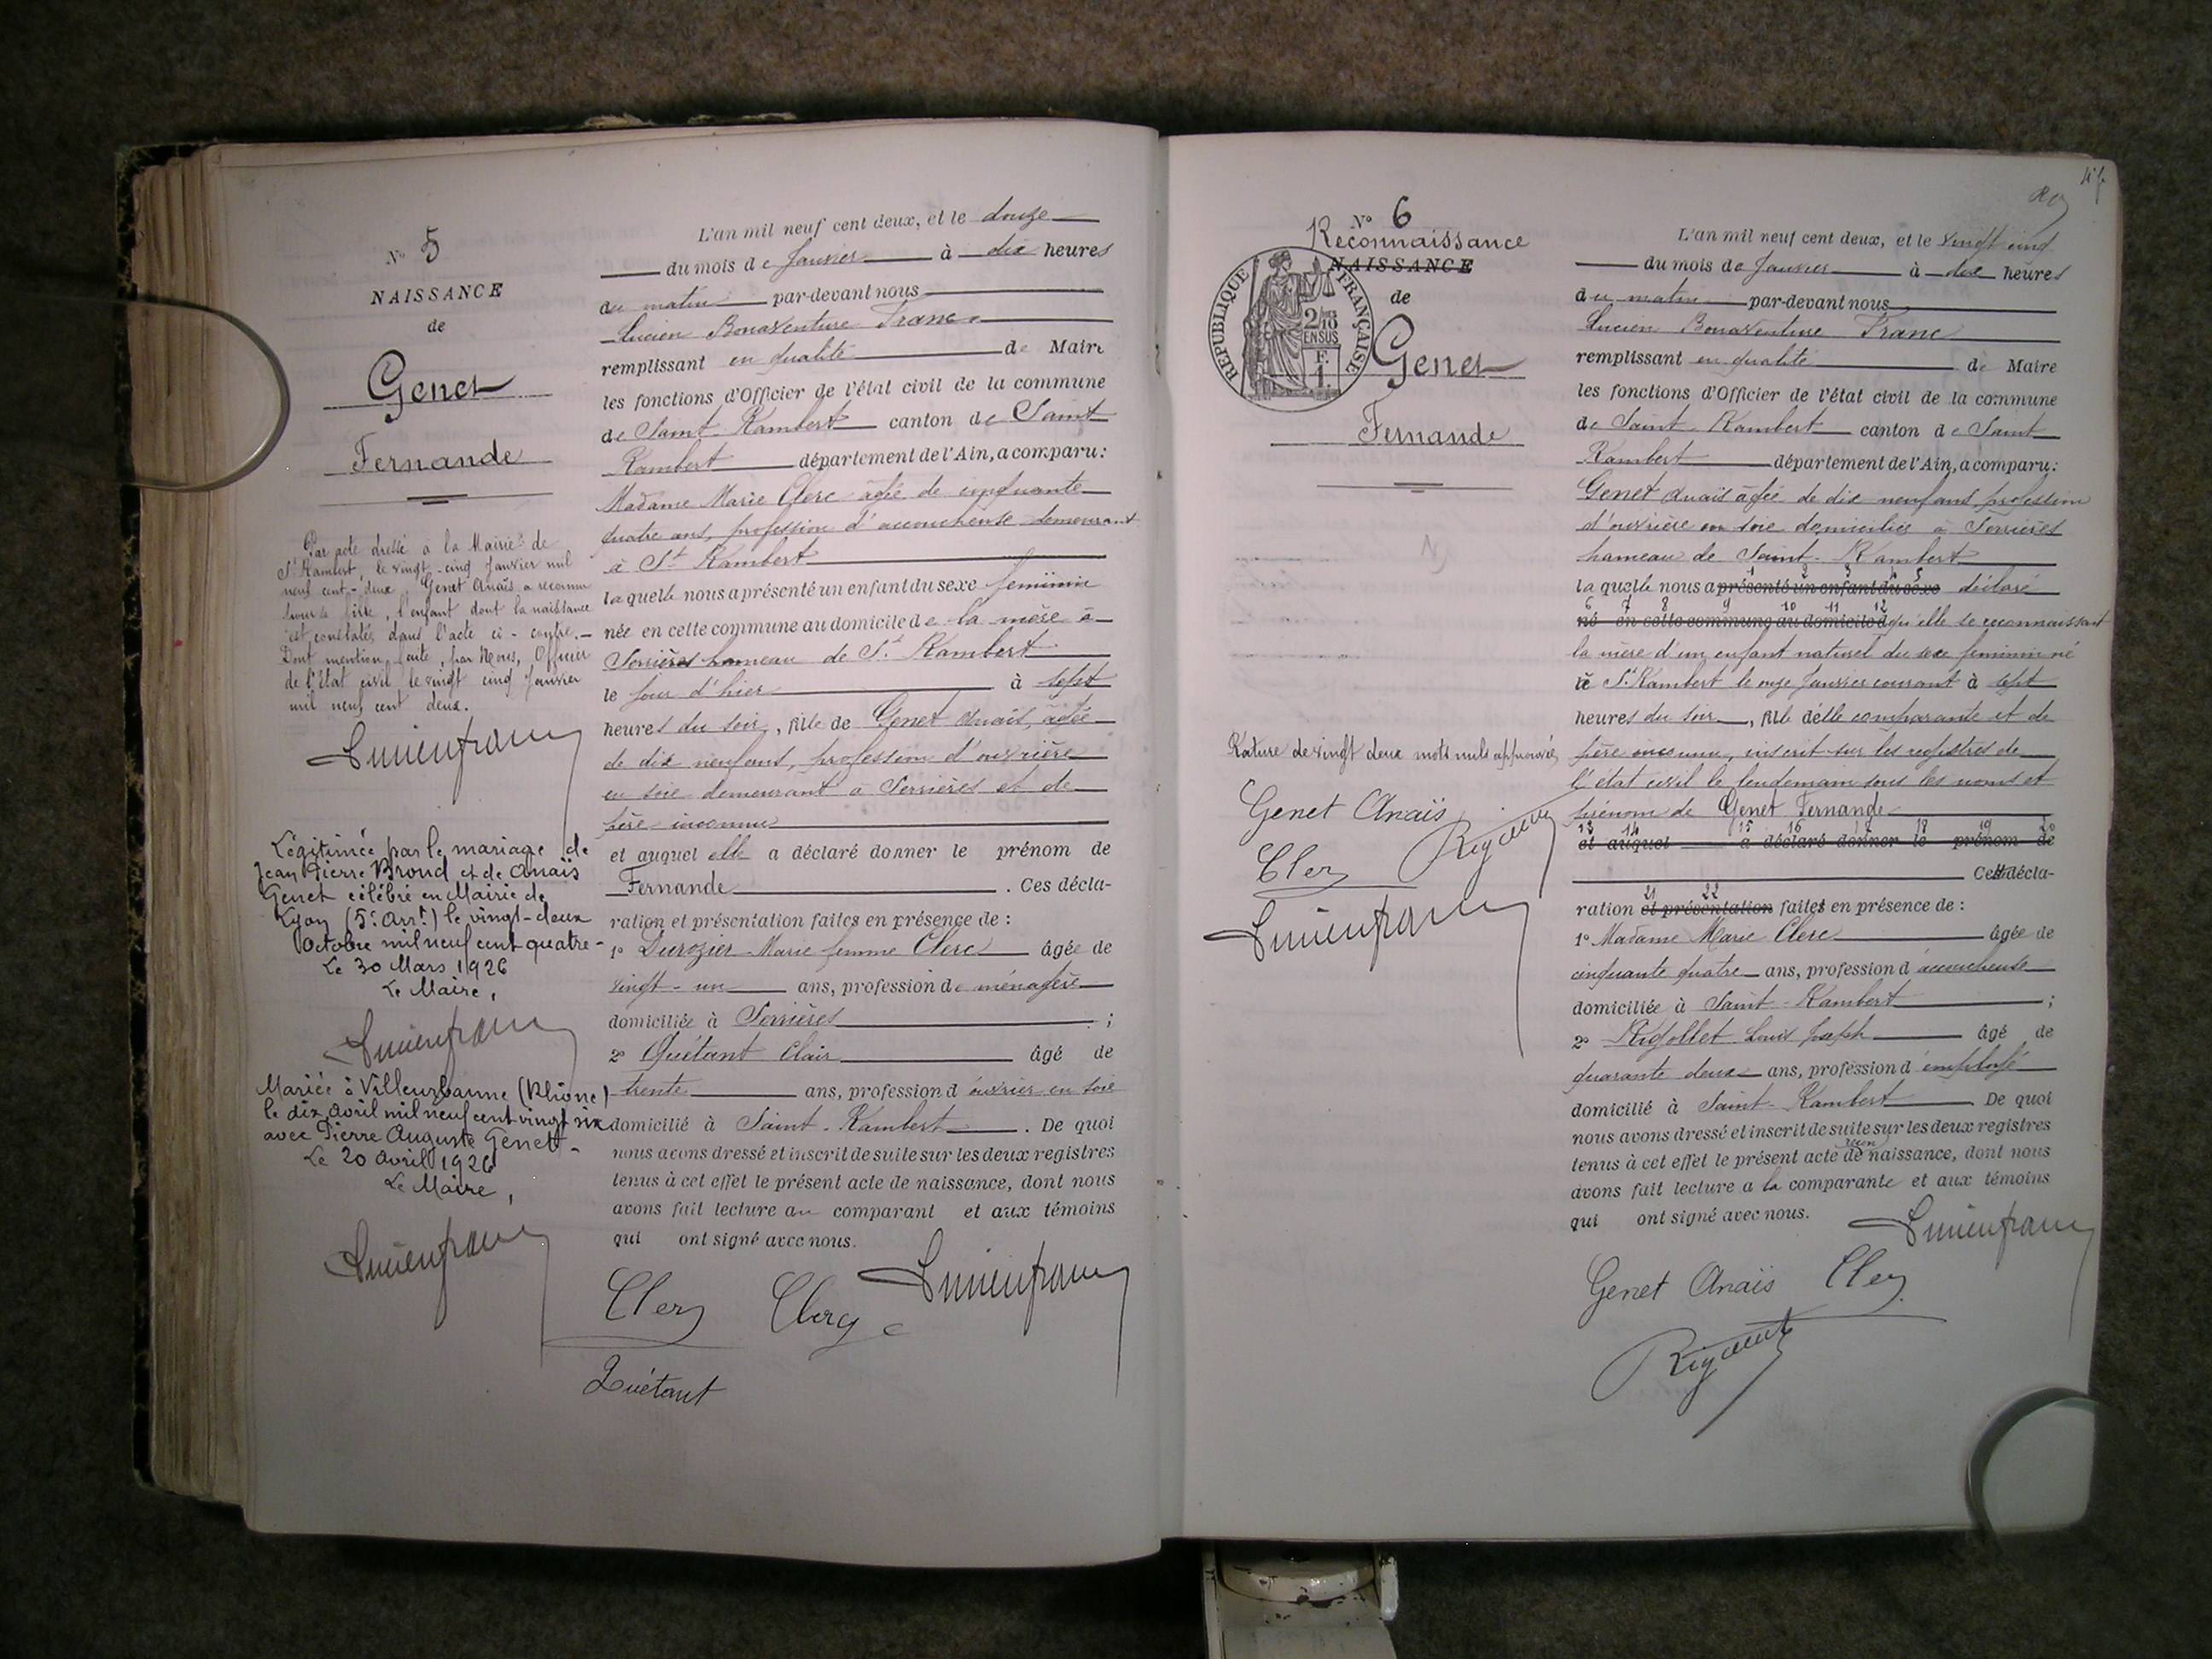 N° 5
NAISSANCE
de
Genet
Fernande
Par acte dressé à la Mairie de
St Rambert, le vingt-cinq Janvier mil
neuf cent-deux, Genet Anaïs a reconnu
pour sa fille, l'enfant dont la naissance
est constatée dans l'acte ci-contre.-
Dont mention faite, par Nous, Officier
de l'Etat civil le vingt cinq Janvier
mil neuf cent deux.
Lucien franc
Légitimée par le mariage de
Jean Pierre Broud et de Anaïs
Genet célébré en Mairie de
Lyon (5e Arrt) le vingt-deux
Octobre mil neuf cent quatre-
Le 30 Mars 1926
Le Maire,
Lucien franc
Mariée à Villeurbanne (Rhône)
le dix avril mil neuf cent vingt six
avec Pierre Auguste Genett-
Le 20 avril 1926
Le Maire,
Lucien franc
L'an mil neuf cent deux, et le douze
du mois de Janvier à dix heures
du matin par-devant nous
Lucien Bonaventure Franc
remplissant en qualité de Maire
les fonctions d'Officier de l'état civil de la commune
de Saint Rambert canton de Saint
Rambert département de l'Ain, a comparu:
Madame Marie Clerc âgée de cinquante
quatre ans, profession d'accoucheuse demeurant
à St Rambert
laquelle nous a présenté un enfant du sexe feminin
née en cette commune au domicile de la mère à
Serrières hameau de St Rambert
le jour d'hier à sept
heures du soir, fille de Genet Anaïs, âgée
de dix neuf ans, profession d'ouvrière
en soie demeurant à Serrières et de
père inconnu
et auquel elle a déclaré donner le prénom de
Fernande . Ces décla-
ration et présentation faites en présence de :
1° Durozier Marie femme Clerc âgée de
vingt-un ans, profession de ménagère
domiciliée à Serrières ;
2° Quétant Clair âgé de
trente ans, profession d'ouvrier en soie
domicilié à Saint-Rambert . De quoi
nous avons dressé et inscrit de suite sur les deux registres
tenus à cet effet le présent acte de naissance, dont nous
avons fait lecture au comparant et aux témoins
qui ont signé avec nous.
Lucien franc
Clerc
Quétant
N° 6
Reconnaissance
NAISSANCE
de
Genet
Fernande
REPUBLIQUE FRANÇAISE
2/10 EN SUS
F.
1.
Rature de vingt deux mots nuls approuvée
Genet Anaïs
Clerc
Lucien franc
L'an mil neuf cent deux, et le vingt cinq
du mois de Janvier à dix heures
du matin par-devant nous
Lucien Bonaventure Franc
remplissant en qualité de Maire
les fonctions d'Officier de l'état civil de la commune
de Saint-Rambert canton de Saint
Rambert département de l'Ain, a comparu:
Genet Anaïs âgée de dix neuf ans, profession
d'ouvrière en soie domiciliée à Serrières
hameau de Saint-Rambert
1 2 3 4 5
laquelle nous a présenté un enfant du sexe déclaré
6 7 8 9 10 11 12
né en cette commune au domicile d qu'elle se reconnaissait
la mère d'un enfant naturel du sexe feminin né
à St Rambert le onze Janvier courant à sept
heures du soir, fille d'elle comparante et de
père inconnu, inscrit sur les registres de
l'état civil le lendemain sous les noms et
prénom de Genet Fernande
13 14 15 16 17 18 19 20
et auquel a déclaré donner le prénom de
Cette décla-
21 22
ration et présentation faites en présence de :
1° Madame Marie Clerc âgée de
cinquante quatre ans, profession d'accoucheuse
domiciliée à Saint-Rambert ;
2° Rigollet Louis Joseph âgé de
quarante deux ans, profession d'employé
domicilié à Saint-Rambert De quoi
nous avons dressé et inscrit de suite sur les deux registres
tenus à cet effet le présent acte de naissance, dont nous
avons fait lecture a la comparante et aux témoins
qui ont signé avec nous.
Lucien franc
Genet Anaïs Clerc